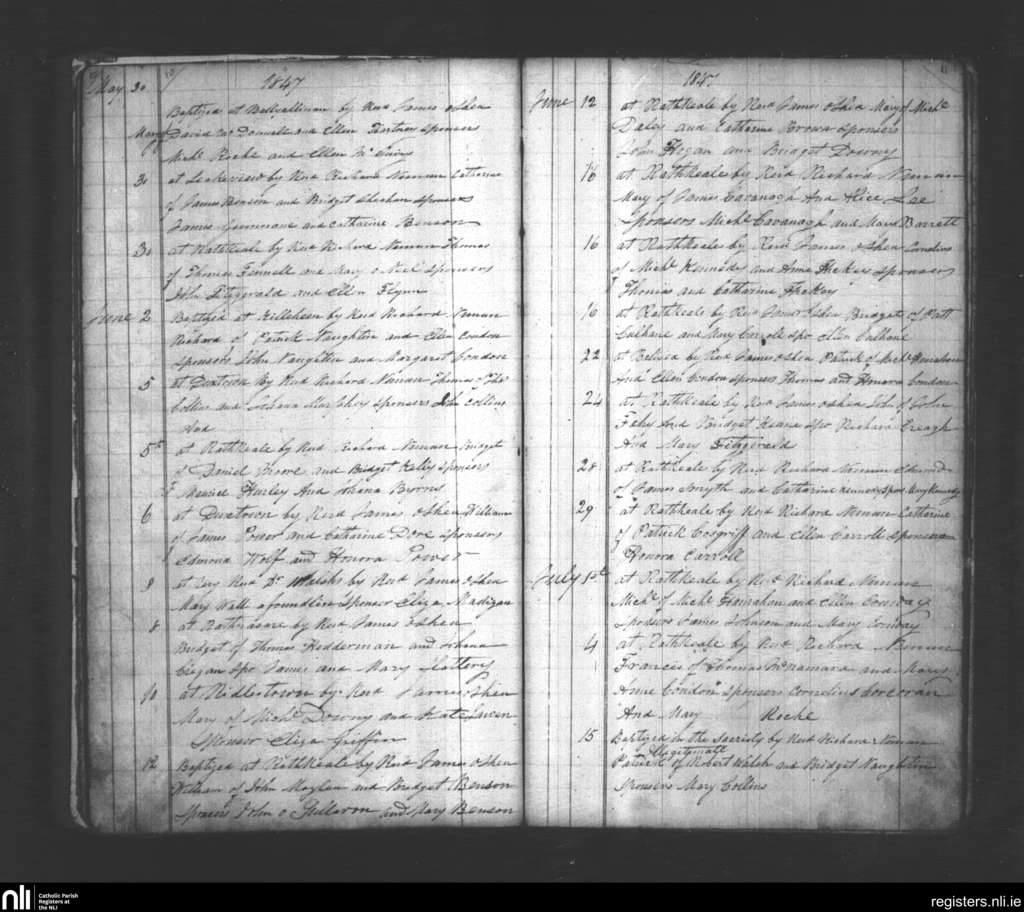 May 30 1847
Baptized at Ballyallinan by Revd James oShea
Mary of David Mc Donnell and Ellen sponsors
Michl Roche and Ellen
30 at by Revd Richard Noonan Catherine
of James Benson and Bridget Sheehan sponsors
James and Catharine Benson
30 at Rathkeale by Revd Richard Noonan Thomas
of Thomas Fennell and Mary o Neil sponsors
John Fitzgerald and Ellen Flynn
June 2 Baptized at by Revd Richard Noonan
Richard of Patrick Naughtin and Ellen Condon
sponsors John Naughtin and Margaret Condon
5 at Duxtown By Revd Richard Noonan Thomas of Ths
Collins and Johana Murphy sponsors John Collins
5 at Rathkeale by Revd Richard Noonan Bridget
of Daniel Moore and Bridget Kelly sponsors
Maurice Hurley And Johana Byrns
6 at Duxtown by Revd James oShea William
of James Power and Catharine Dore sponsors
Edmond Wolf and Honora Power
8 at Revd Dr Walshs by Revd James oShea
Mary Wall a foundlin sponsor Eliza Madigan
8 at by Revd James oShea
Bridget of Thomas Hedderman and Johana
spo James and Mary Slattery
10 at Ridlestown by Revd James oShea
Mary of Michl Downy and Kate
Sponser Eliza Griffin
12 Baptized at Rathkeale by Revd James oShea
William of John Moylan and Bridget Benson
Sponsers John o Hallaron and Mary Benson
11
1847
June 12 at Rathkeale by Revd James oShea Mary of Michl
Daley and Catherine Brown sponsers
John Hogan and Bridget Downy
16 at Rathkeale by Revd Richard Noonan
Mary of James Cavanagh And Alice
Sponsers Michl Cavanagh and Mary Barrett
16 at Rathkeale by Revd James oShea Cornelius
of Michl Kennedy and Anne Hickey sponsers
Thomas and Catharine Hickey
16 at Rathkeale by Revd James oShea Bridget of Patt
Culhane and Mary Carroll spo Ellen Culhane
22 at by Revd James oShea Patrick of Michl Hanahan
And Ellen Condon sponsers Thomas and Honora Condon
24 at Rathkeale by Revd James oShea John of John
Fahy And Bridget Keane spo Richard Creagh
And Mary Fitzgerald
28 at Rathkeale by Revd Richard Noonan Edmond
of James Smyth and Catharine Kennedy spos Kennedy
29 at Rathkeale by Revd Richard Noonan Catharine
of Patrick Cosgriff and Ellen Carroll sponsers
Honora Carroll
July 1st at Rathkeale by Revd Richard Noonan
Michl of Michl Hanahan and Ellen Conway
Sponsers James Johnson and Mary Conway
4 at Rathkeale by Revd Richard Noonan
Frances of Thomas McNamara and Mary
Anne Condon sponsers Cornelius Corcoran
And Mary Roche
15 Baptized in the sacristy by Revd Richard Noonan
Illegitimate
Patrick of Robert Walsh and Bridget Naughtin
Sponsers Mary Collins
nli
Catholic Parish
Registers at
the NLI
registers.nli.ie